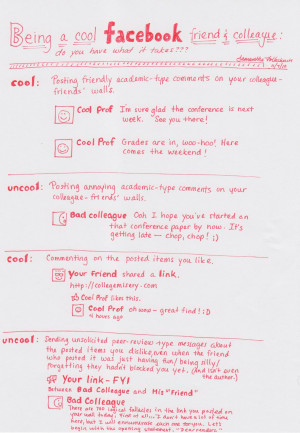 Being a cool facebook friend & colleague:
do you have what it takes???
cool: Posting friendly academic-type comments on your colleague-
friends' walls.
Cool Prof I'm sure glad the conference is next
week. See you there!
Cool Prof Grades are in, woo-hoo! Here
comes the weekend!
uncool: Posting annoying academic-type comments on your
colleague-friends' walls.
Bad colleague Ooh I hope you've started on
that conference paper by now. It's
getting late — chop, chop! ;)
cool: Commenting on the posted items you like.
Your friend shared a link.
http://collegemisery.com
Cool Prof likes this.
Cool Prof oh wow - great find! :D
4 hours ago
uncool: Sending unsolicited peer-review-type messages about
the posted items you dislike, even when the friend
who posted it was just having fun/being silly/
forgetting they hadn't blocked you yet. (And isn't even
the author.)
Your link - FYI
Between Bad Colleague and His "Friend"
Bad Colleague
There are 700 logical fallacies in the link you posted on
your wall today, first of all... I don't have a lot of time
here, but I will ennumerate each one for you. Let's
begin with the opening statement, "Dear readers."